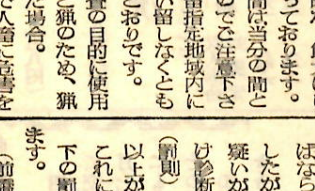 っております。
間は当分の間と
のでご注意下さ
留指定地域内に
い留しなくとも
とおりです。
の目的に使用
と猟のため、猟
た場合。
で人畜に危害を
ばなら
したが
疑いが
け診断
（罰則）
以上が
これに
下の罰
ます。